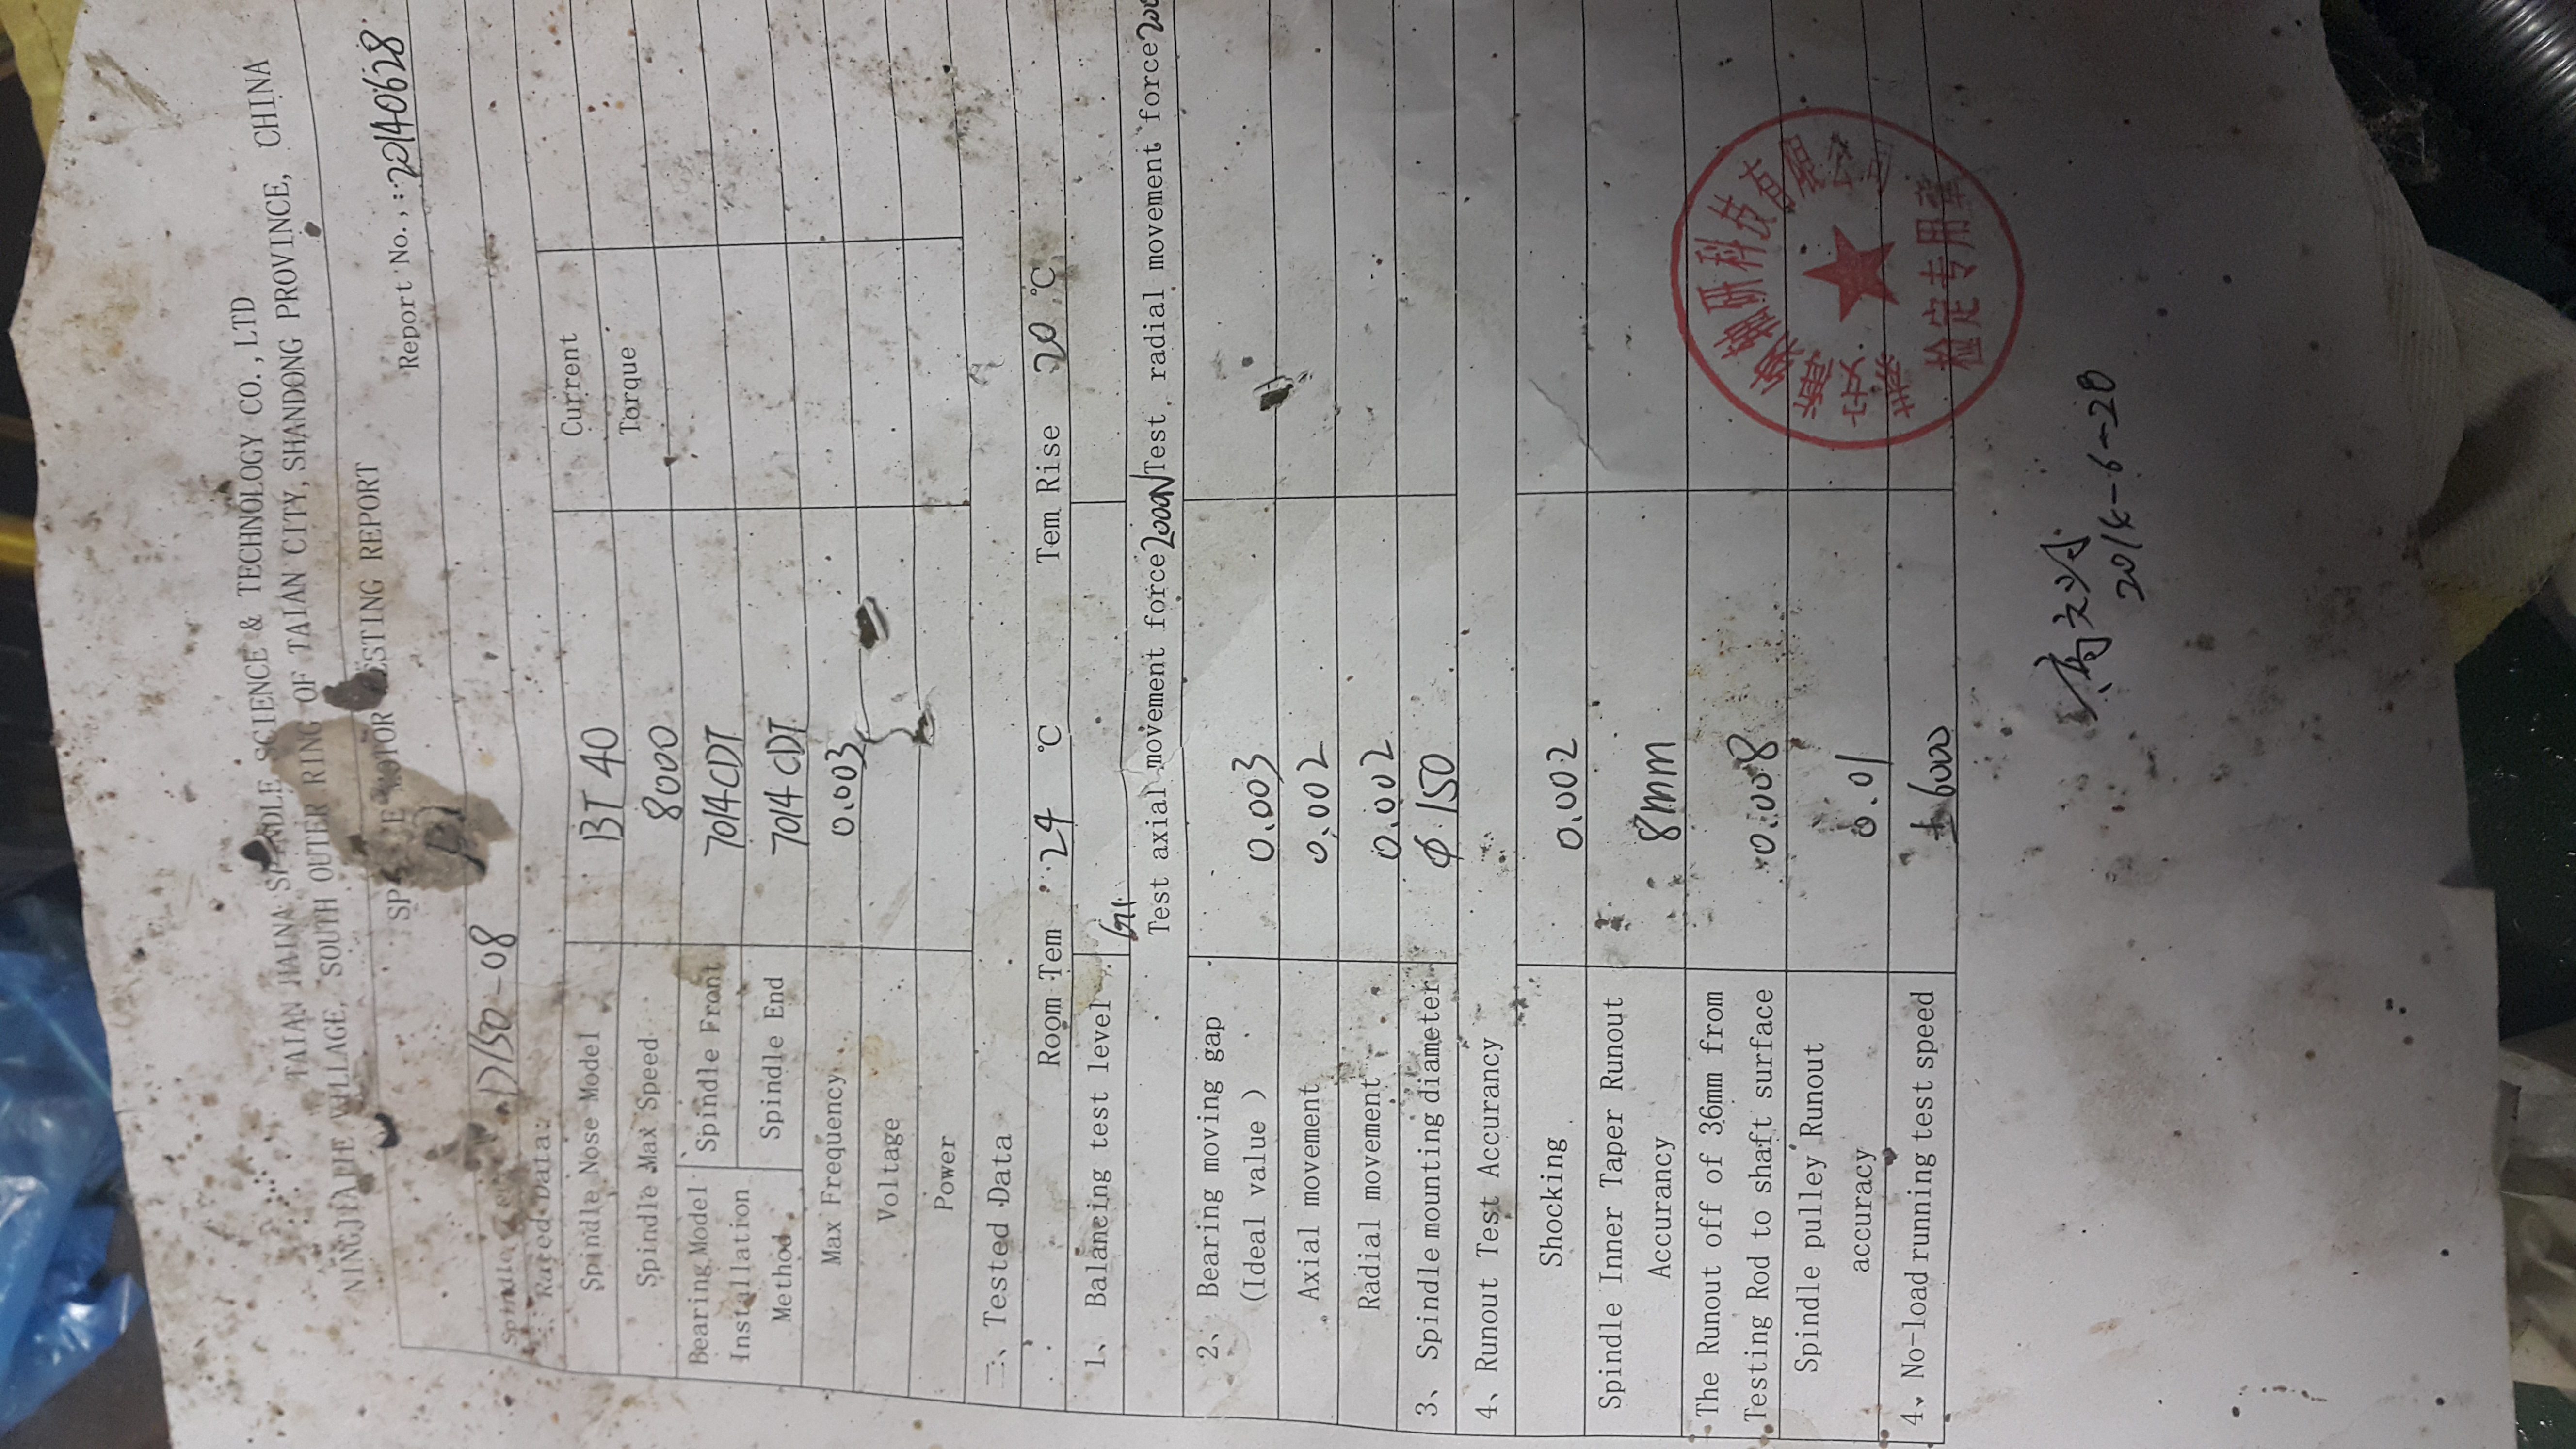 TAIAN HAINA SPINDLE SCIENCE & TECHNOLOGY CO.,LTD
NINGJIAJIE VILLAGE, SOUTH OUTER RING OF TAIAN CITY, SHANDONG PROVINCE, CHINA
MOTOR TESTING REPORT
Report No.,: 22140628
Spindle D150-08
Rated Data:
Spindle Nose Model BT 40 Current
Spindle Max Speed 8000 Torque
Bearing Model Installation Method Spindle Front 7014CDT
Spindle End 7014CDT
Max Frequency 0.003
Voltage
Power
二、Tested Data
Room Tem 24 ℃ Tem Rise 20 ℃
1、Balancing test level G1
Test axial movement force 2000N Test radial movement force
2、Bearing moving gap
(Ideal value ) 0.003
Axial movement 0.002
Radial movement 0.002
3、Spindle mounting diameter φ 150
4、Runout Test Accurancy
Shocking 0.002
Spindle Inner Taper Runout
Accurancy 8mm
The Runout off of 36mm from
Testing Rod to shaft surface 0.008
Spindle pulley Runout
accuracy 0.01
4、No-load running test speed 6000
泰安海纳轴研科技有限公司
检定专用章
2014-6-28